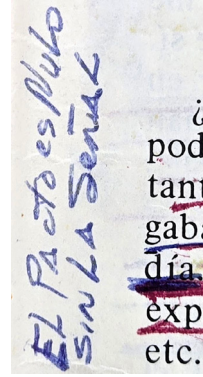 EL Pacto es Nulo
SIN LA Señal
¿
pod
tant
gaba
día.
exp
etc.